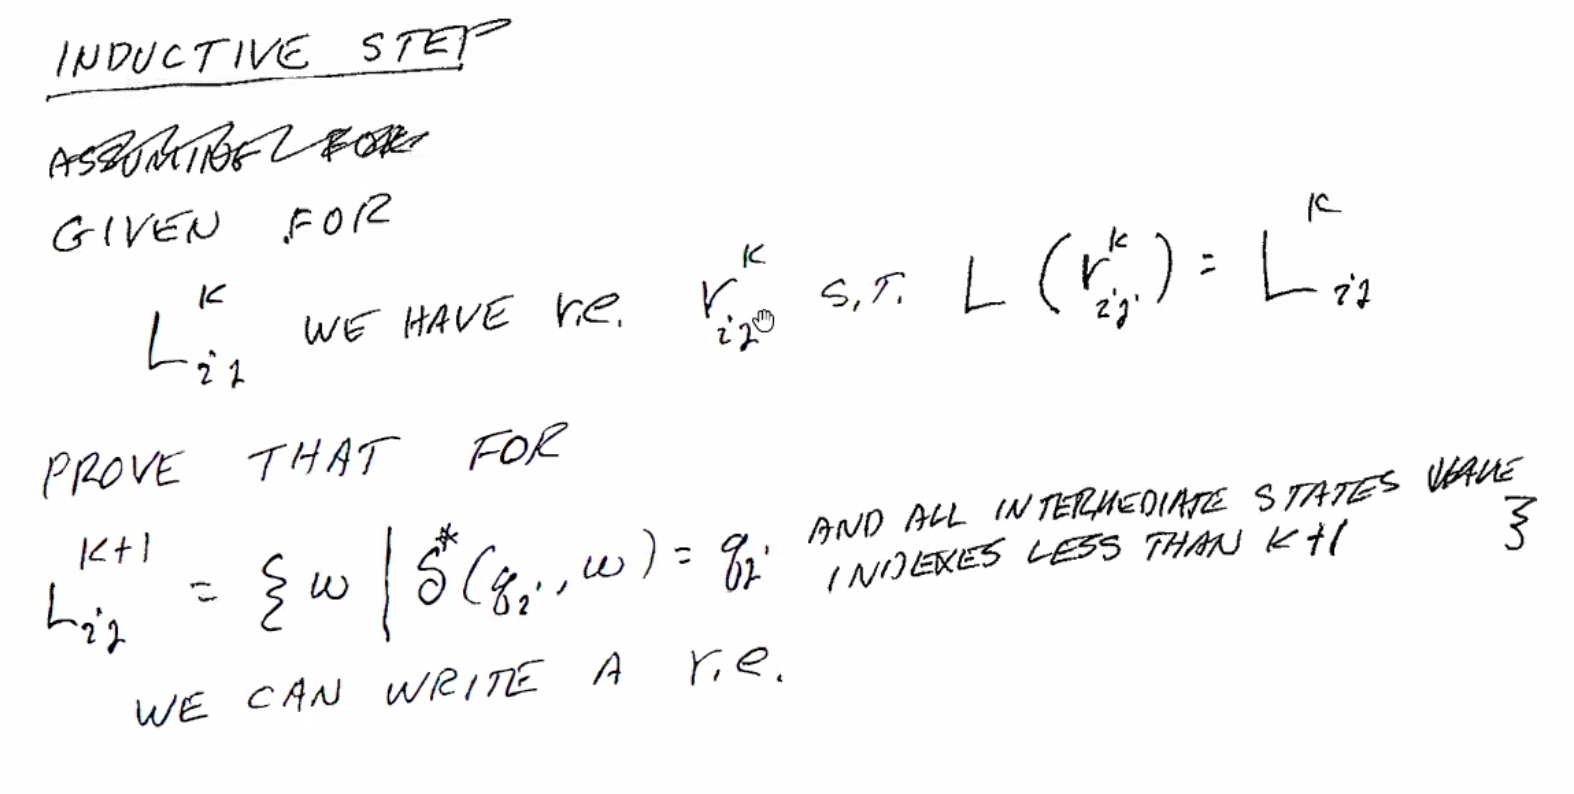 INDUCTIVE STEP
ASSUMING FOR
GIVEN FOR
L_{ij}^{K} WE HAVE r.e. r_{ij}^{K} S.T. L(r_{ij}^{K}) = L_{ij}^{K}
PROVE THAT FOR
L_{ij}^{K+1} = { w | δ*(q_i, w) = q_j AND ALL INTERMEDIATE STATES HAVE
INDEXES LESS THAN K+1 }
WE CAN WRITE A r.e.